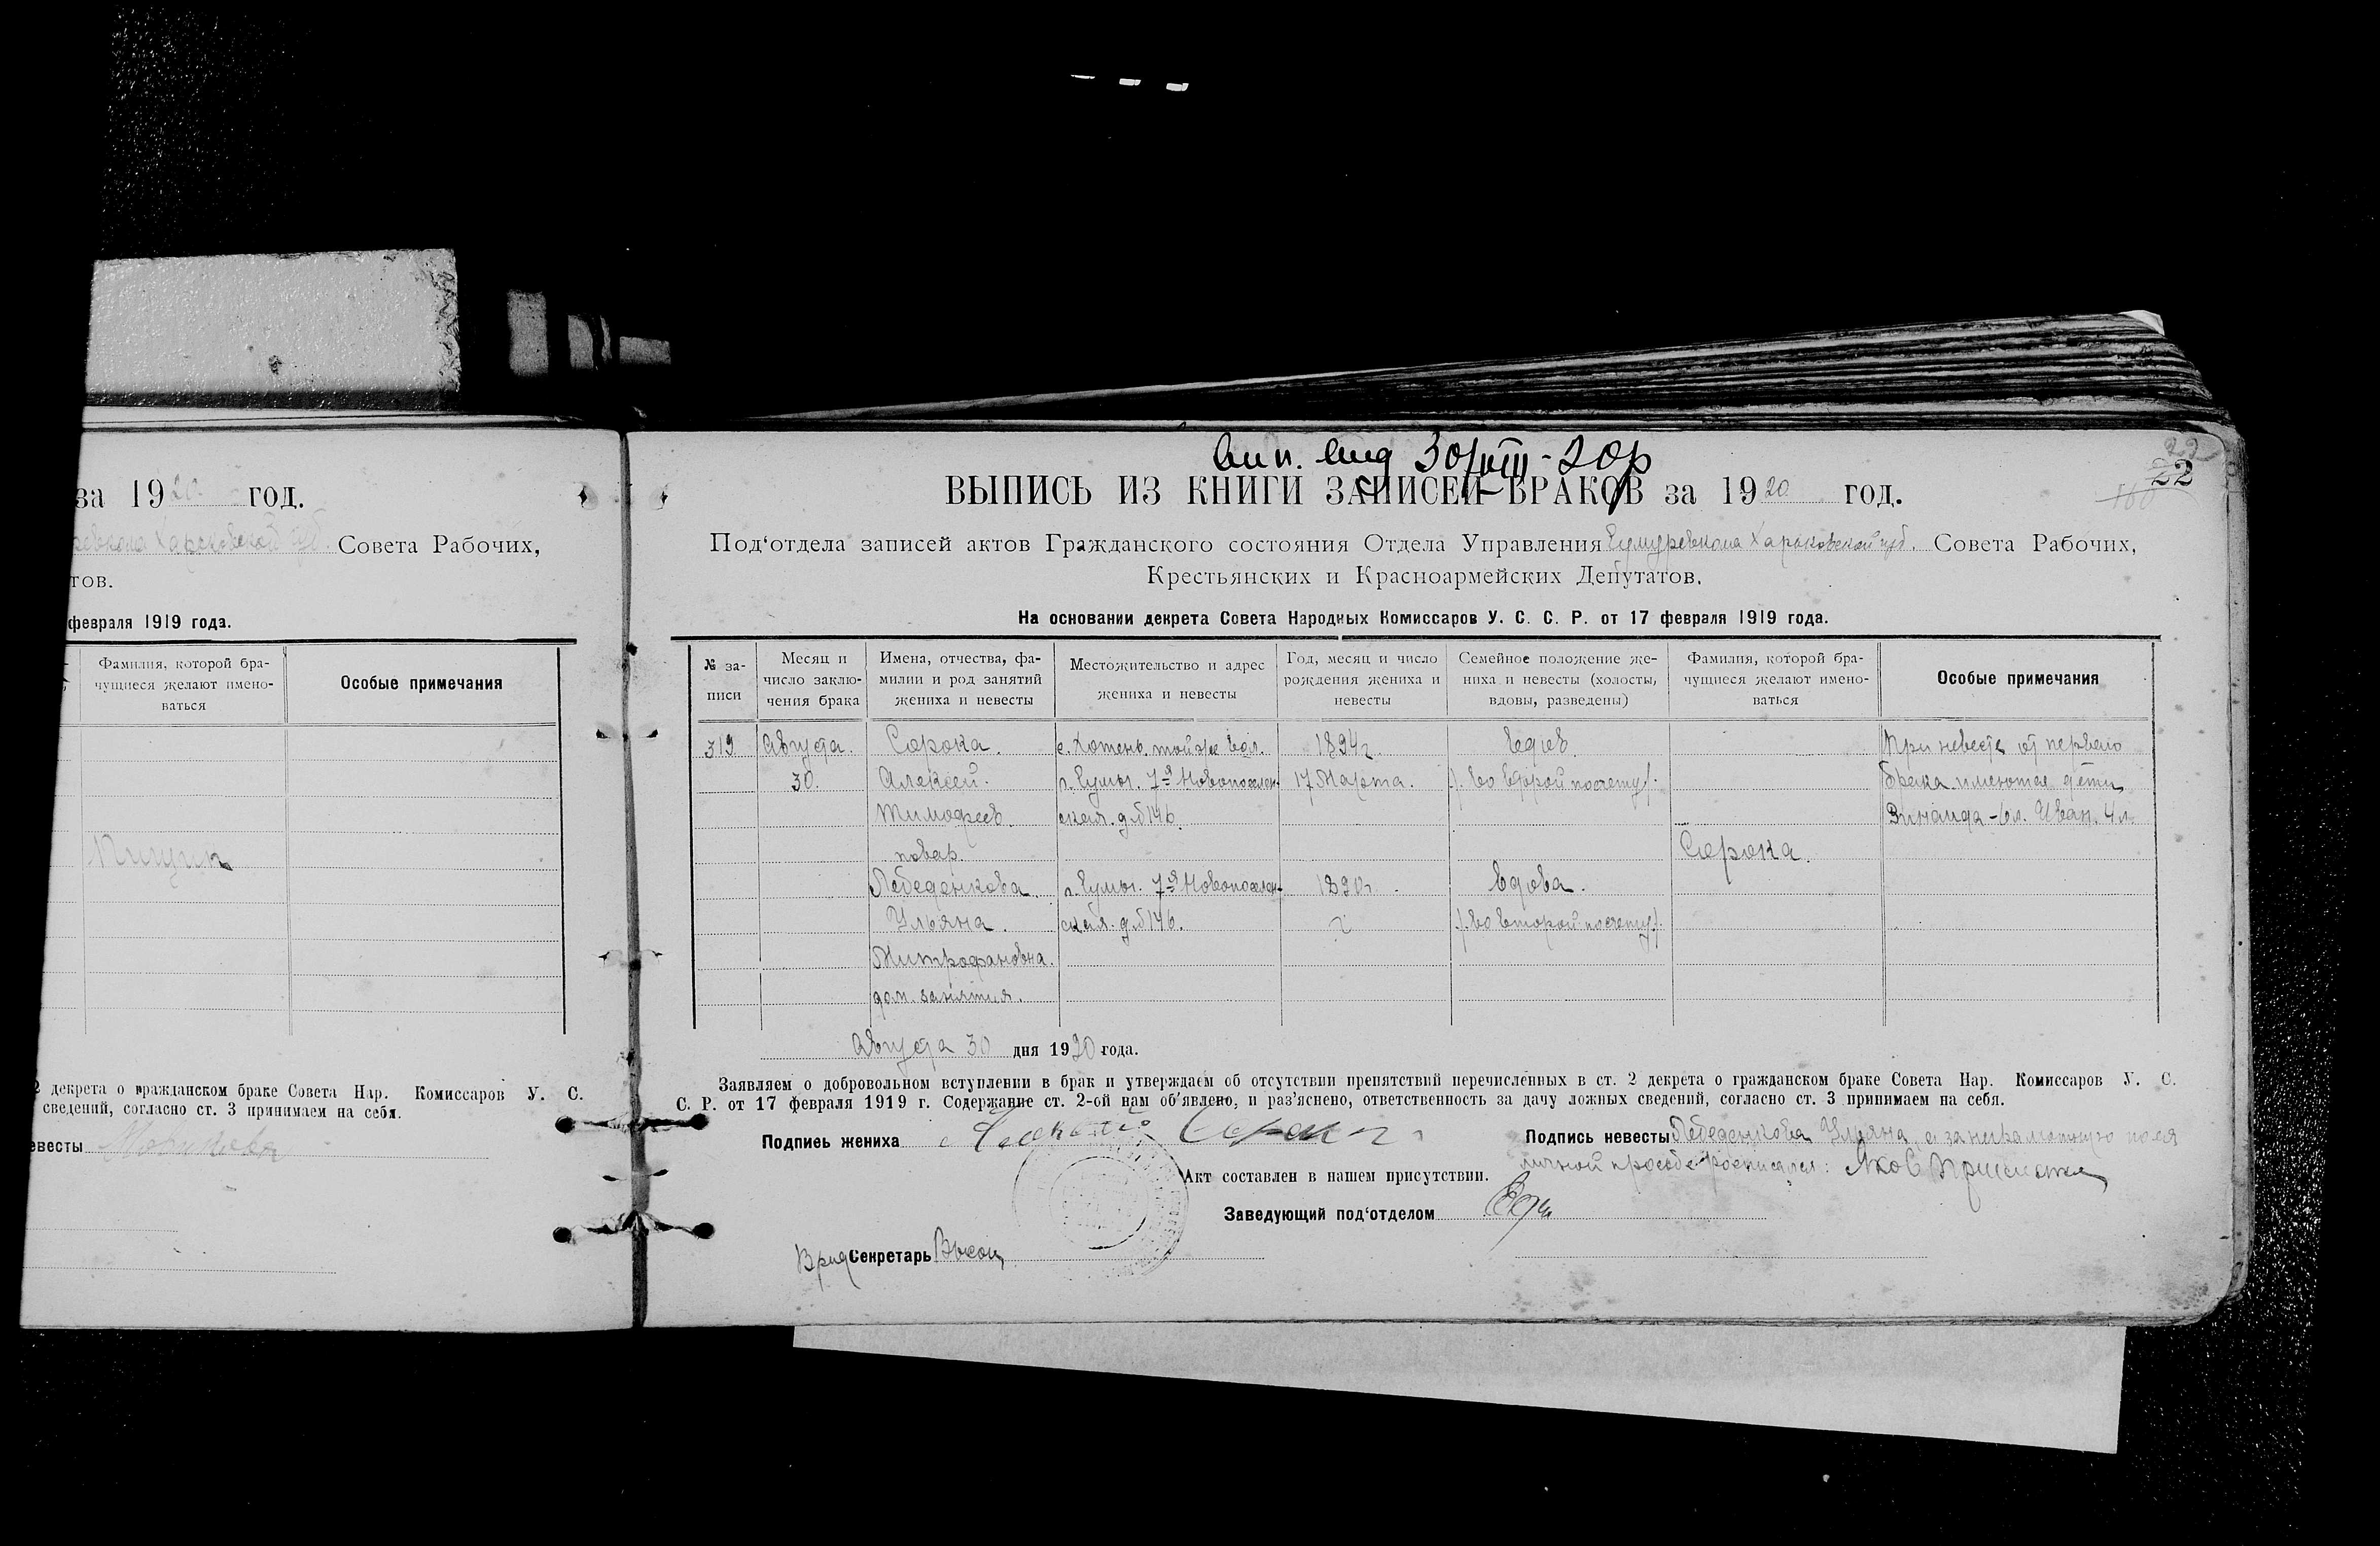 за 1920 год.
Харьковской губ. Совета Рабочих,
тов.
февраля 1919 года.
Фамилия, которой бра-
чущиеся желают имено-
ваться
Особые примечания
2 декрета о гражданском браке Совета Нар. Комиссаров У. С.
сведений, согласно ст. 3 принимаем на себя.
евесты
вип. вид 30/VIII-20р
22
22
160
ВЫПИСЬ ИЗ КНИГИ ЗАПИСЕЙ БРАКОВ за 1920 год.
Под‘отдела записей актов Гражданского состояния Отдела Управления Сумуревкома Харьковской губ. Совета Рабочих,
Крестьянских и Красноармейских Депутатов.
На основании декрета Совета Народных Комиссаров У. С. С. Р. от 17 февраля 1919 года.
№ за-
писи
Месяц и
число заклю-
чения брака
Имена, отчества, фа-
милии и род занятий
жениха и невесты
Местожительство и адрес
жениха и невесты
Год, месяц и число
рождения жениха и
невесты
Семейное положение же-
ниха и невесты (холосты,
вдовы, разведены)
Фамилия, которой бра-
чущиеся желают имено-
ваться
Особые примечания
319 Августа. Сорока. с. Хотень. той же вол. 1894г. Вдов. При невесте от первого
30. Алексей. г. Сумы. 7-я Новопоселен- 17 Марта. /. во второй посчету/. брака имеются дети
Тимофеев. ская. д. №146. Зинаида - 6л. Иван. 4 л.
повар. Сорока.
Лебеденкова г. Сумы. 7-я Новопоселен- 1890г. Вдова.
Ульяна. ская. д. №146. /. во второй посчету/.
Митрофановна.
дом. занятия.
Августа 30 дня 1920 года.
Заявляем о добровольном вступлении в брак и утверждаем об отсутствии препятствий перечисленных в ст. 2 декрета о гражданском браке Совета Нар. Комиссаров У. С.
С. Р. от 17 февраля 1919 г. Содержание ст. 2-ой нам об‘явлено, и раз‘яснено, ответственность за дачу ложных сведений, согласно ст. 3 принимаем на себя.
Подпись жениха Сорока
Подпись невесты Лебеденкова Ульяна, а за неграмотную по ея
личной просьбе росписался: Яков
Акт составлен в нашем присутствии.
Заведующий под‘отделом
Врид Секретарь